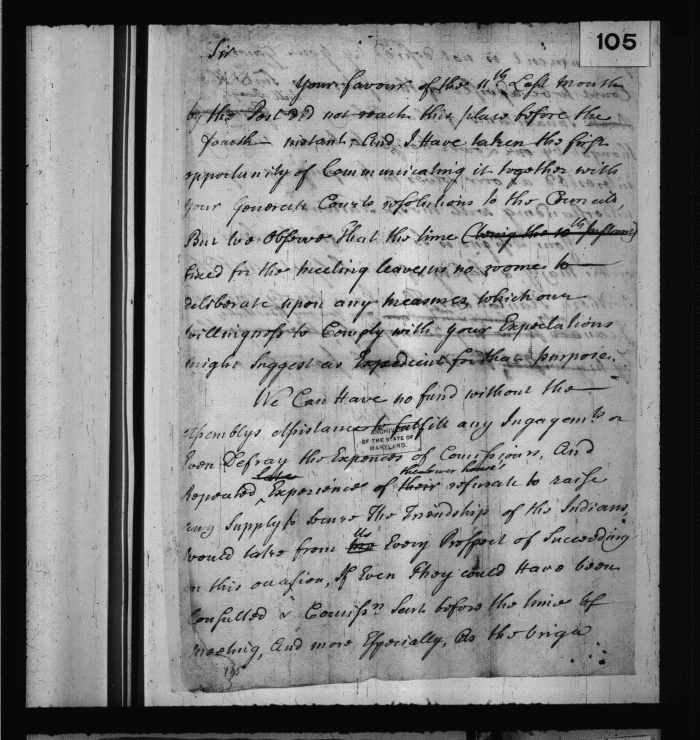 105
Sir
Your favour of the 11th Last Month
by the Post did not reach this place before the
fourth instant, And I Have taken the first
oppertunity of Communicating it together with
your Generale Courts resolutions to the Councele,
But we Observe That the time (being the 10th Instant)
fixed for the meeting leaves us no roome to
deliberate upon any measures which our
willingness to Comply with your Expectations
might Suggest as Expedient for that purpose.
We Can Have no fund without the
Assemblys Assistance to fulfill any Ingagemts or
Even Defray the Expences of Comissours, And
late the lower house's
Repeated Experiences of their refusale to raise
any Supply to Secure The Friendship of the Indians,
us
would take from Every Prospect of Succeeding
on this occasion, If Even They could Have been
Consulted & Comissrs Sent before the time of
meeting, And more Especially, As the briga
ARCHIVES
OF THE STATE OF
MARYLAND
195